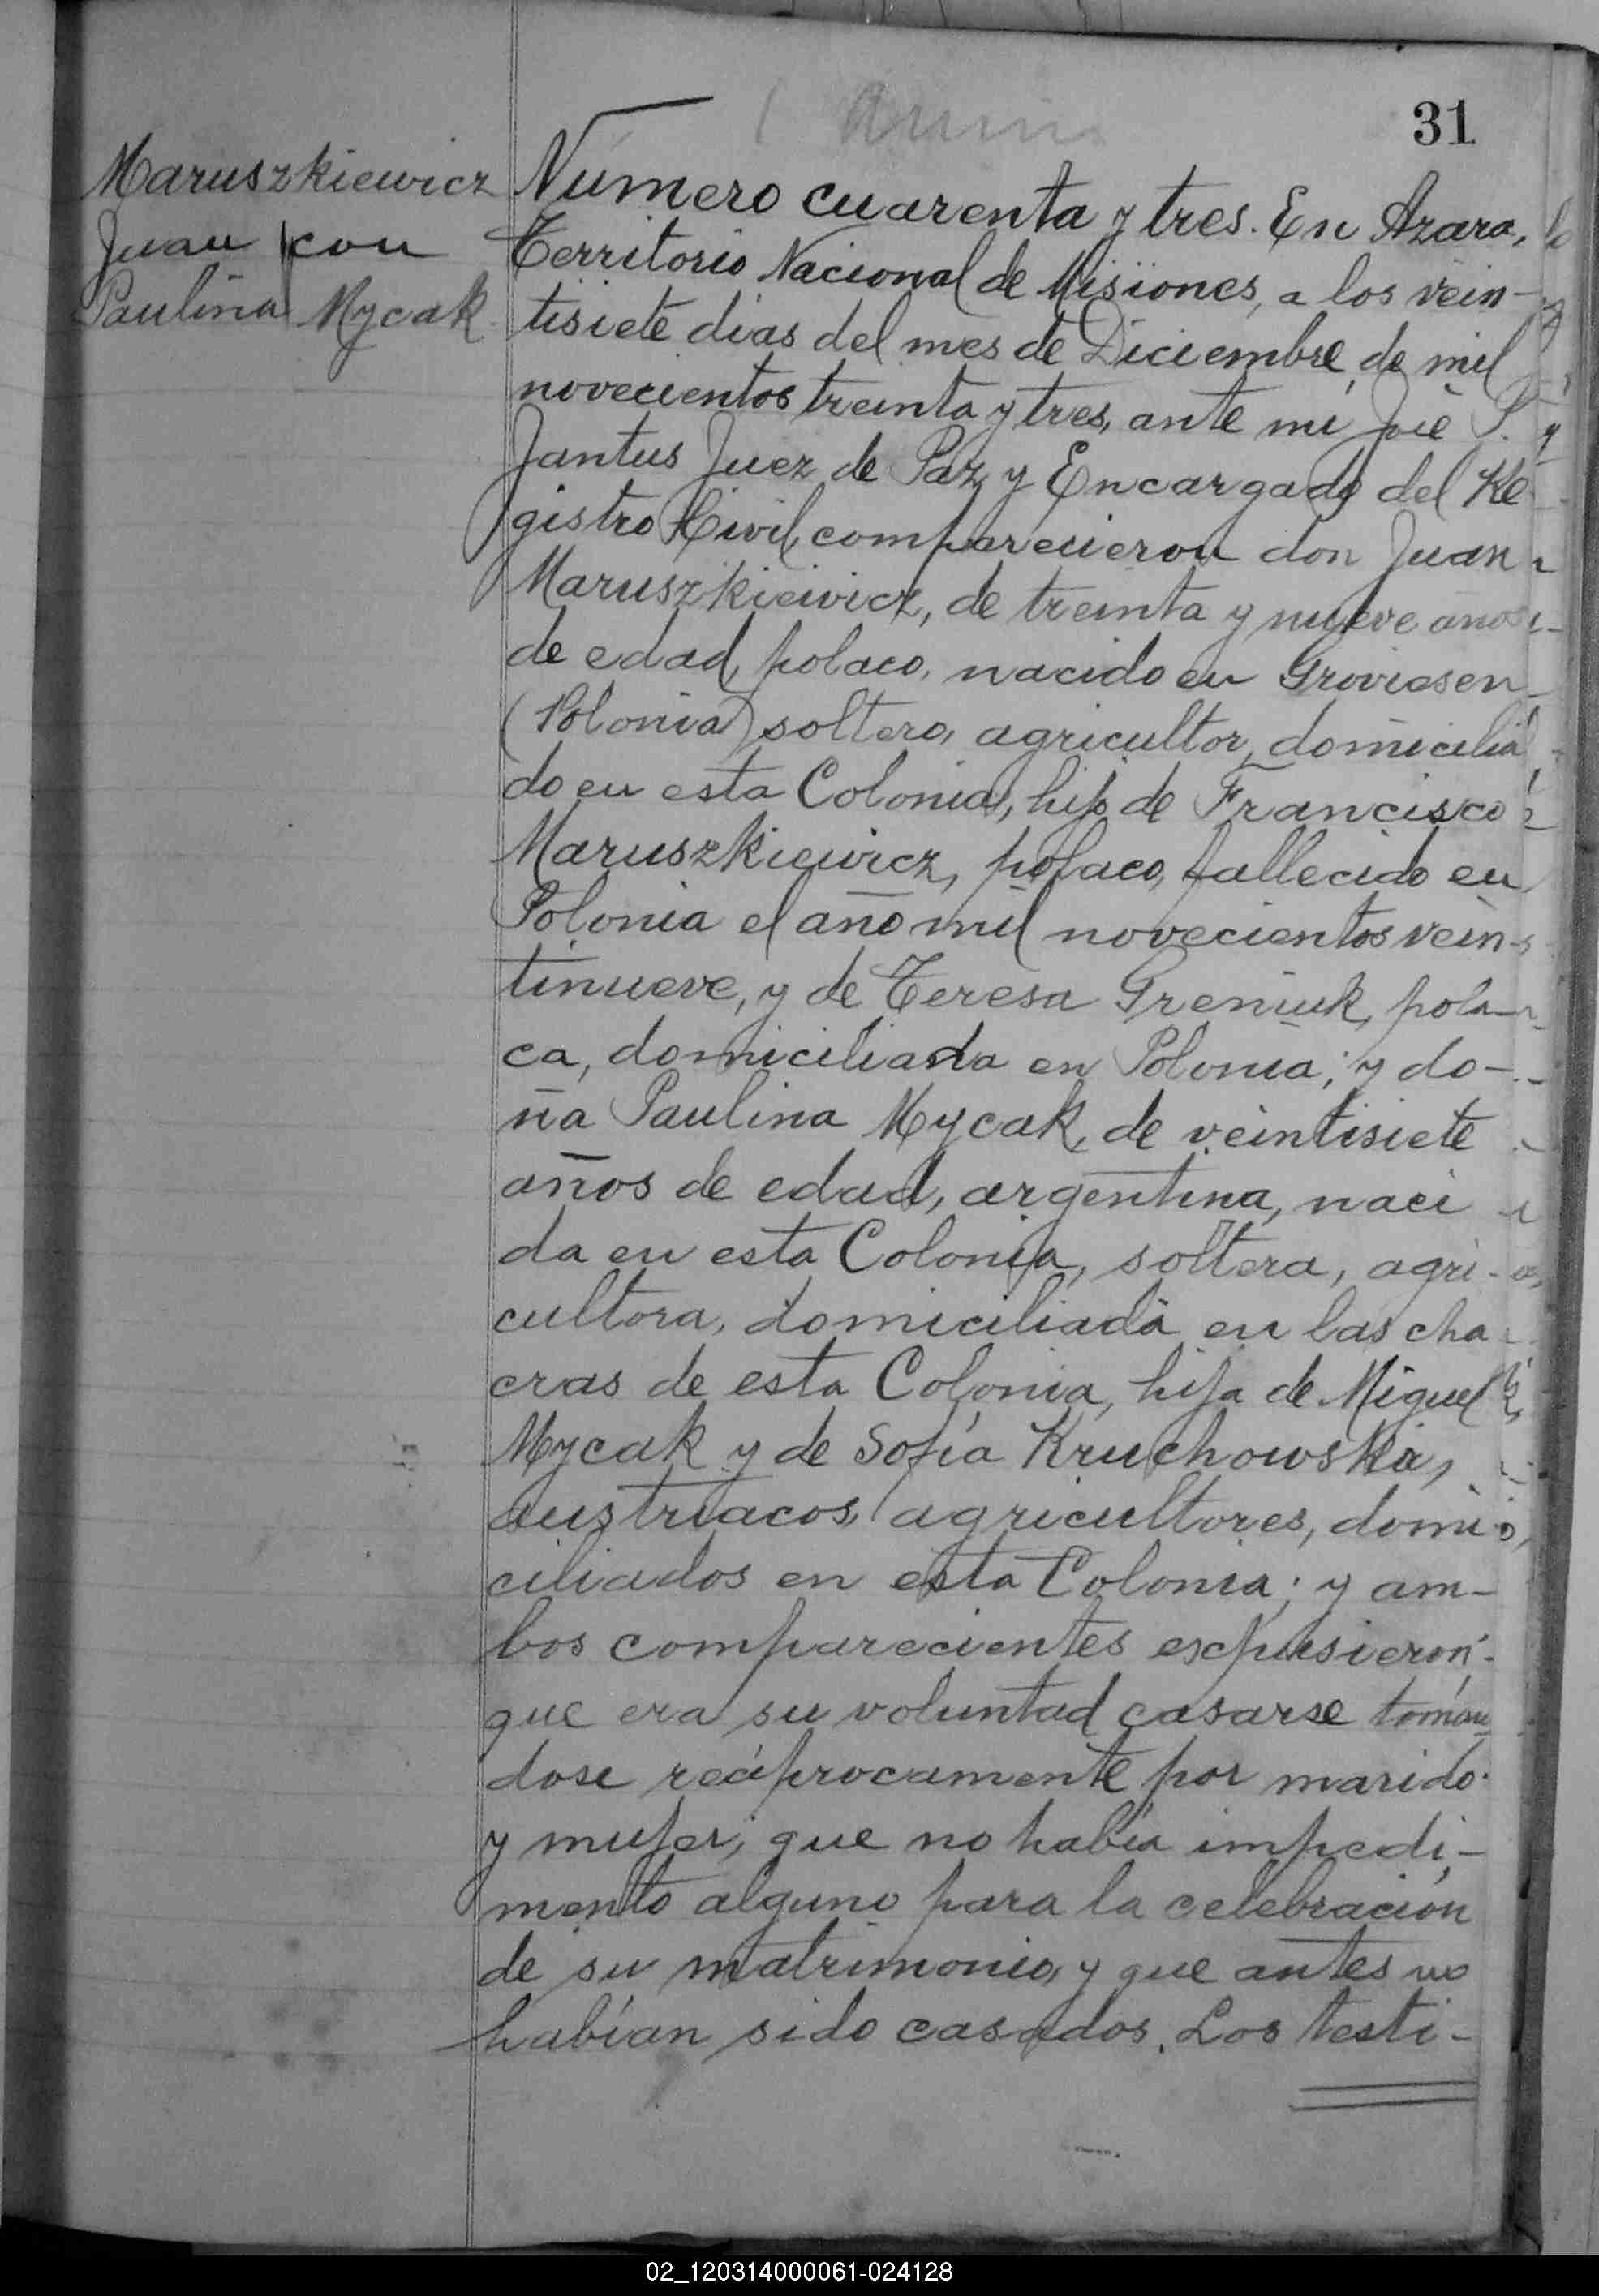 31
Maruszkiewicz
Juan con
Paulina Mycak
Número cuarenta y tres. En Azara,
Territorio Nacional de Misiones, a los vein-
tisiete dias del mes de Diciembre de mil
novecientos treinta y tres, ante mi José P.
Jantus Juez de Paz y Encargado del Re
gistro Civil, comparecieron don Juan
Maruszkiewicz, de treinta y nueve años
de edad, polaco, nacido en
(Polonia) soltero, agricultor, domicilia
do en esta Colonia, hijo de Francisco
Maruszkiewicz, polaco, fallecido en
Polonia el año mil novecientos vein-
tinueve, y de Teresa Greniuk, pola-
ca, domiciliada en Polonia; y do-
ña Paulina Mycak, de veintisiete
años de edad, argentina, naci
da en esta Colonia, soltera, agri-
cultora, domiciliada en las cha
cras de esta Colonia, hija de Miguel
Mycak y de Sofía Kruchowska,
austriacos, agricultores, domi-
ciliados en esta Colonia; y am-
bos comparecientes expusieron
que era su voluntad casarse toman
dose recíprocamente por marido
y mujer, que no había impedi-
mento alguno para la celebración
de su matrimonio, y que antes no
habían sido casados. Los testi-
02_120314000061-024128